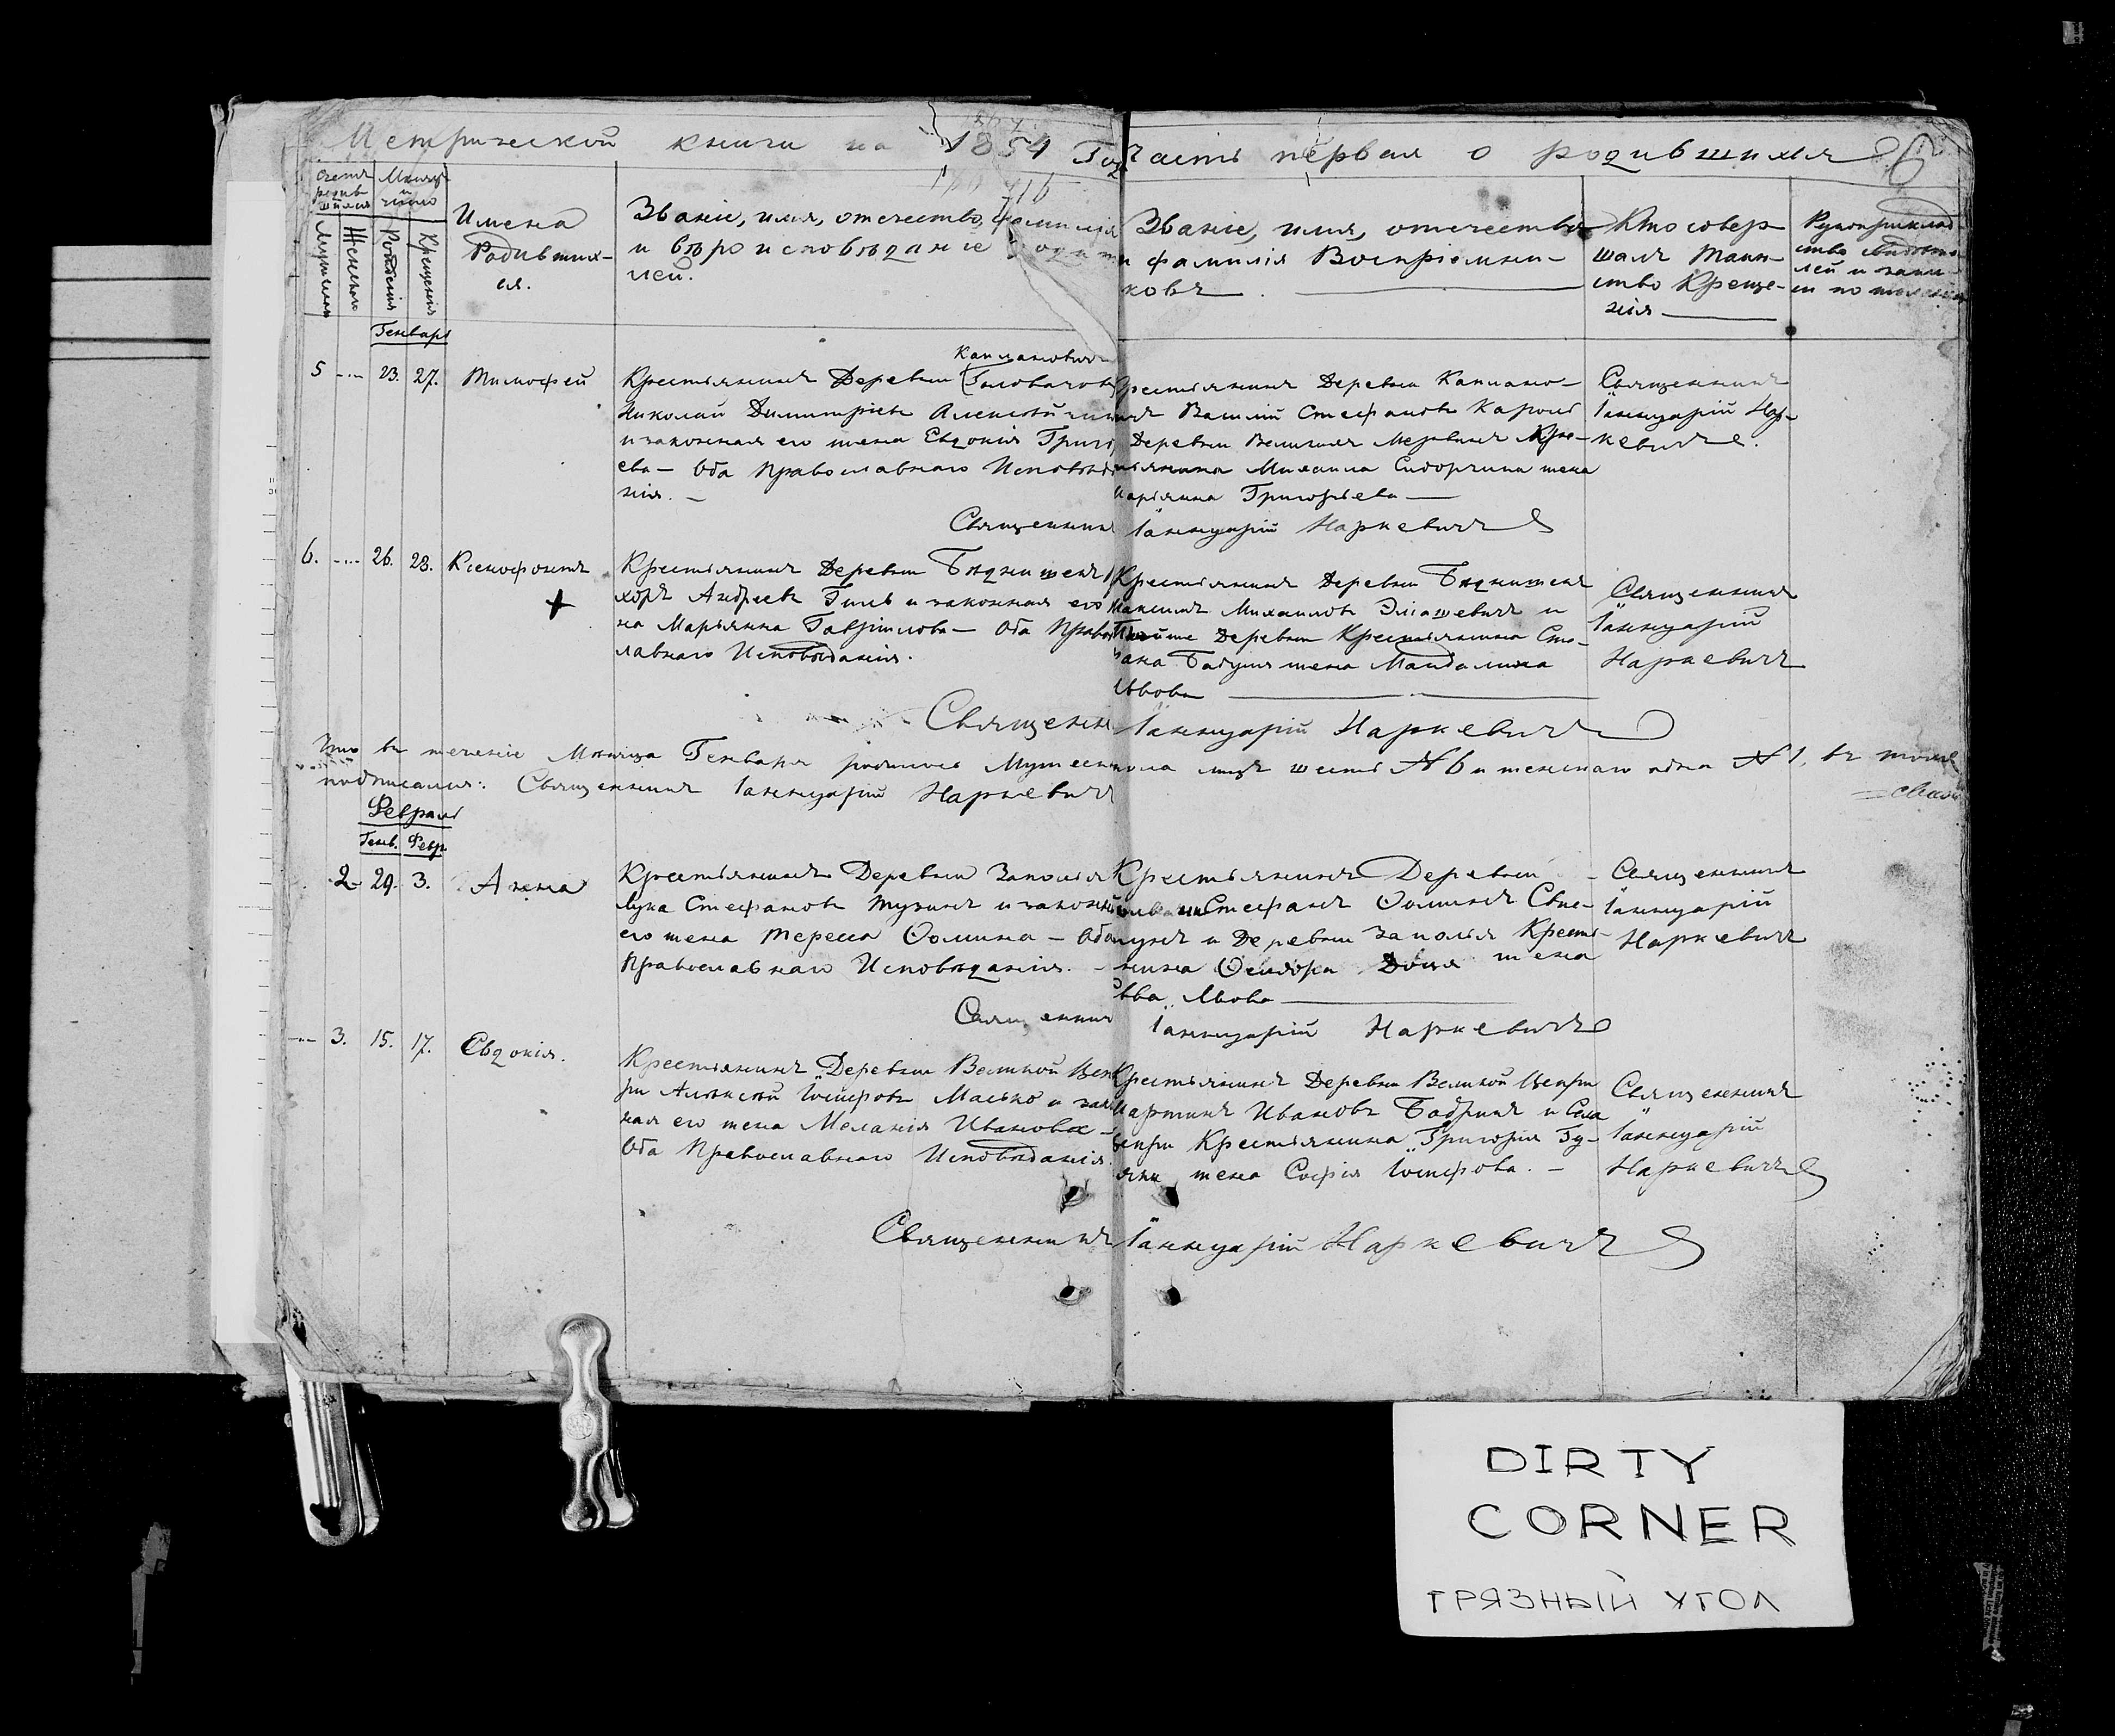 Метрической книги на 1854 Год
Часть первая о родившихся
Счетъ родившихся
Мѣсяцъ и число
Мужескаго
Женскаго
Рожденія
Крещенія
Имена
Родивших-
ся.
Званіе, имя, отечество, фамилія
и вѣроисповѣданіе родите
лей.
Званіе, имя, отечество
и фамилія Воспріемни-
ковъ
Кто совер-
шалъ Таин-
ство Креще-
нія
Рукоприклад
ство свидѣте
лей
Генварь
Каплановичъ
5 23. 27. Тимофей
Крестьянинъ Деревни Головачовъ
Николай Димитріевъ
и законная его жена Евдокія Григо
ева — Оба Православнаго Исповѣда
нія. —
Крестьянинъ Деревни Каплано-
Василій Стефановъ Кароль
Деревни Кре-
стьянина Михаила жена
Маріянна Григорьева —
Священникъ
Іаннуарій Нар-
кевичъ.
Священник Іаннуарій Наркевичъ
6. 26. 28. Ксенофонтъ
Крестьянинъ Деревни
хоръ Андреевъ Гиль и законная его
на Марьянна Гавріилова — Оба Право
лавнаго Исповѣданія.
Крестьянинъ Деревни
Максимъ Михаиловъ и
Деревни Крестьянина Сте-
жена Магдалина
Львова
Священникъ
Іаннуарій
Наркевичъ
Священн Іаннуарій Наркевичъ
Что въ теченіе Мѣсяца Генваря родилось Мужеска пола лицъ шесть № 6 и женскаго одна № 1, въ томъ
подписался: Священникъ Іаннуарій Наркевичъ
Февраль
Генв. Февр.
2 29. 3. Анна
Крестьянинъ Деревни Заполья
Лука Стефановъ и законная
его жена Тереса Ѳомина — Оба
Православнаго Исповѣданія. —
Крестьянинъ Деревни
Стефанъ Ѳоминъ
и Деревни Заполья Кресть-
нина Ѳеодора жена
Львова
Священникъ
Іаннуарій
Наркевичъ
Священник Іаннуарій Наркевичъ
3. 15. 17. Евдокія.
Крестьянинъ Деревни Великой Цеп
ри Алексѣй Іосифовъ Масько и зако
ная его жена Меланія Иванова —
Оба Православнаго Исповѣданія.
Крестьянинъ Деревни Великой Цепри
Мартинъ Ивановъ и Села
Цепри Крестьянина Григорія
жена Софія Іосифова. —
Священникъ
Іаннуарій
Наркевичъ
Священникъ Іаннуарій Наркевичъ
DIRTY
CORNER
ГРЯЗНЫЙ УГОЛ